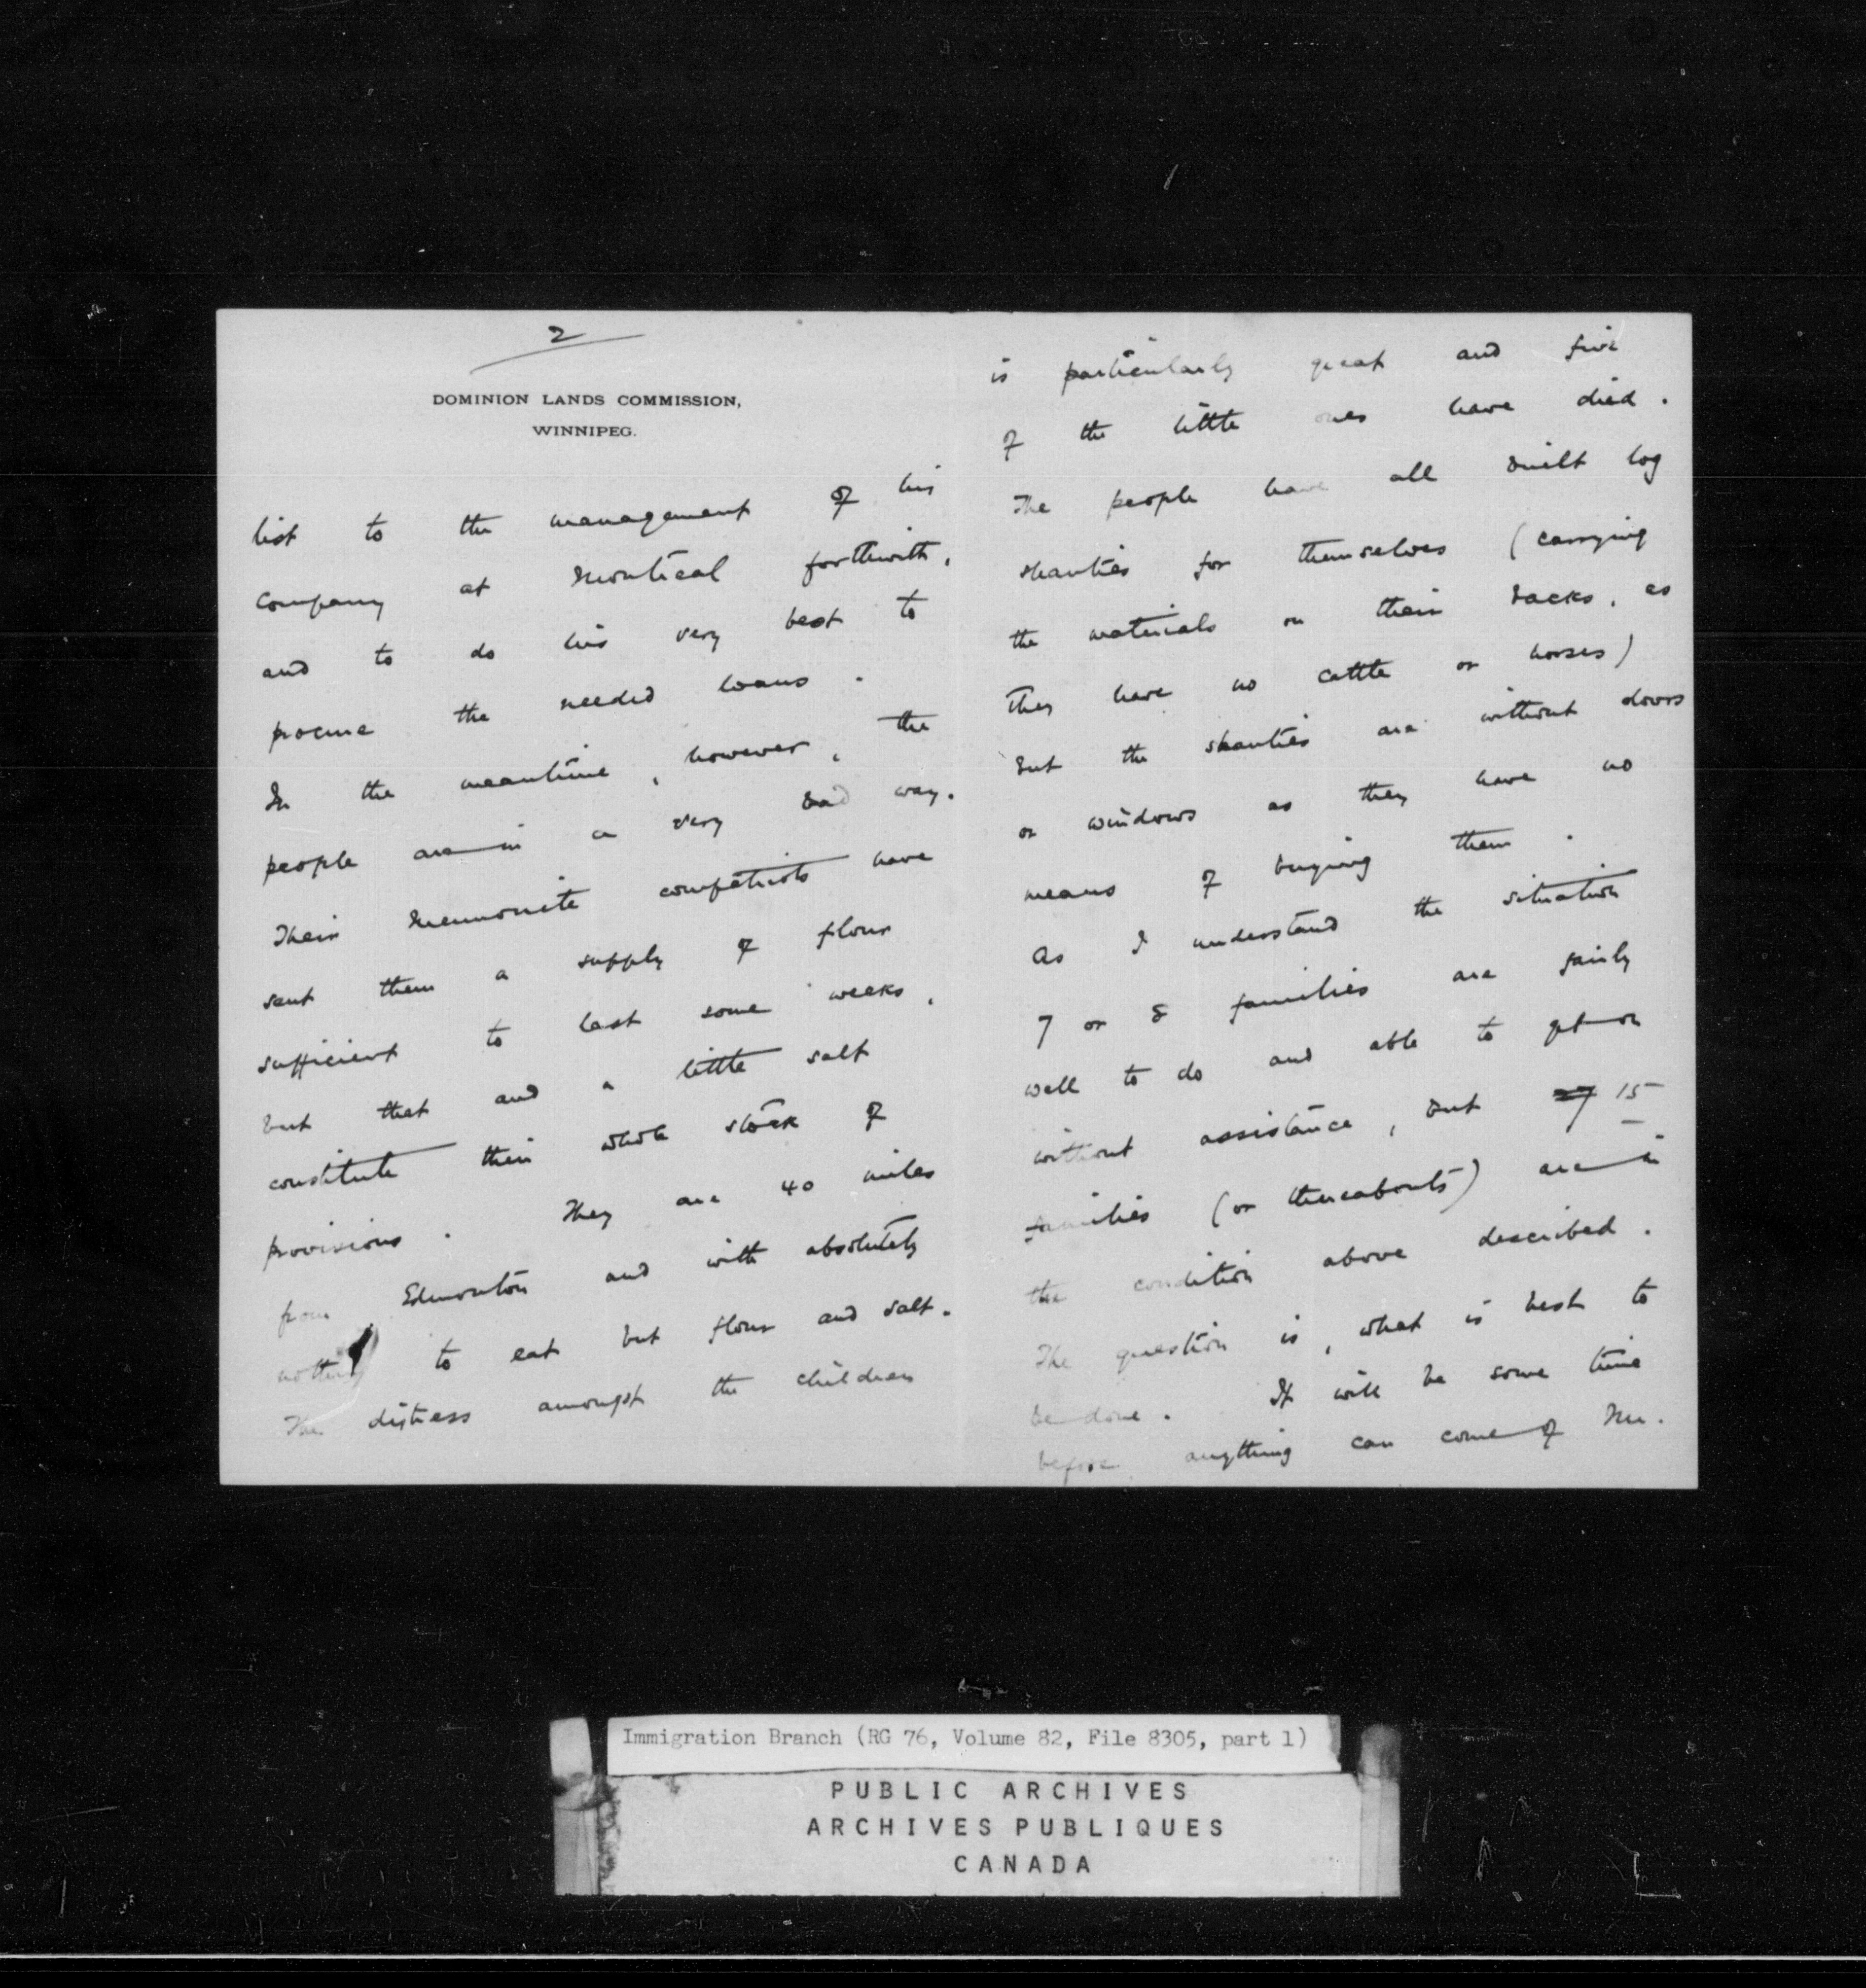 2
DOMINION LANDS COMMISSION,
WINNIPEG.
list to the management of his
Company at Montreal forthwith,
and to do his very best to
procure the needed loans.
In the meantime, however, the
people are in a very bad way.
Their Mennonite compatriots have
sent them a supply of flour
sufficient to last some weeks,
but that and a little salt
constitute their whole stock of
provisions. They are 40 miles
from Edmonton and with absolutely
nothing to eat but flour and salt.
The distress amongst the children
is particularly great and five
of the little ones have died.
The people have all built log
shanties for themselves (carrying
the materials on their backs, as
they have no cattle or horses)
but the shanties are without doors
or windows as they have no
means of buying them.
As I understand the situation
7 or 8 families are fairly
well to do and able to get on
without assistance, but 15
families (or thereabouts) are in
the condition above described.
The question is, what is best to
be done. It will be some time
before anything can come of Mr.
Immigration Branch (RG 76, Volume 82, File 8305, part 1)
PUBLIC ARCHIVES
ARCHIVES PUBLIQUES
CANADA